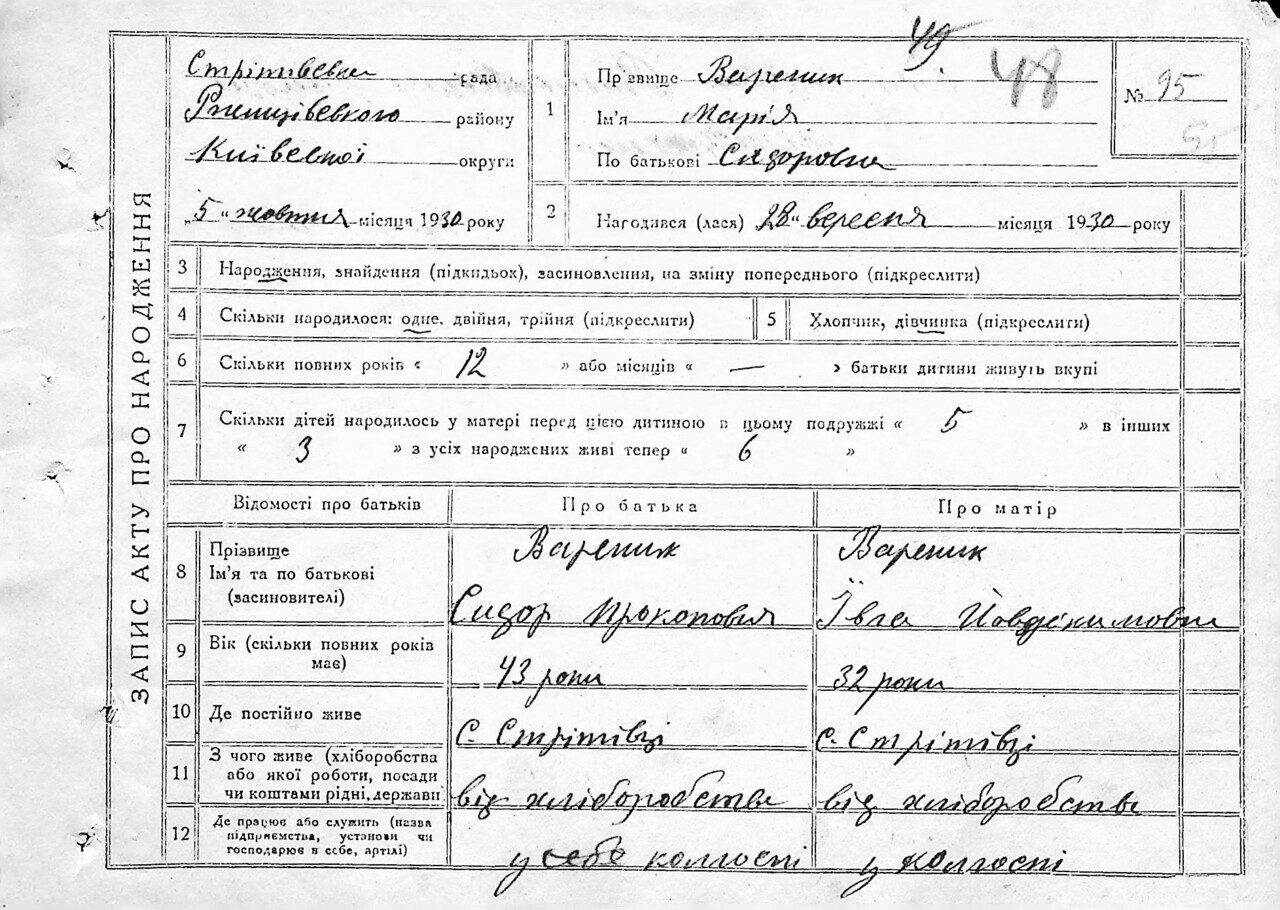 49
48
Стрітівська рада
Ржищівського району
Київської округи
„5“ жовтня місяця 1930 року
1
Прізвище Вареник
Ім’я Марія
По батькові Сидоровна
№ 95
2
Народився (лася) „28“ вересня місяця 1930 року
ЗАПИС АКТУ ПРО НАРОДЖЕННЯ
3 Народження, знайдення (підкидьок), засиновлення, на зміну попереднього (підкреслити)
4 Скільки народилося: одне, двійня, трійня (підкреслити) 5 Хлопчик, дівчинка (підкреслити)
6 Скільки повних років « 12 » або місяців « — » батьки дитини живуть вкупі
7 Скільки дітей народилось у матері перед цією дитиною в цьому подружжі « 5 » в інших
« 3 » з усіх народжених живі тепер « 6 »
Відомості про батьків Про батька Про матір
8 Прізвище Вареник Вареник
Ім’я та по батькові
(засиновителі) Сидор Прокопович Ївга Йовдокимовна
9 Вік (скільки повних років
має) 43 роки 32 роки
10 Де постійно живе с. Стрітівці с. Стрітівці
11 З чого живе (хліборобства
або якої роботи, посади
чи коштами рідні, держави від хліборобства від хліборобства
12 Де працює або служить (назва
підприємства, установи чи
господарює в себе, артілі) у себе колгоспі у колгоспі